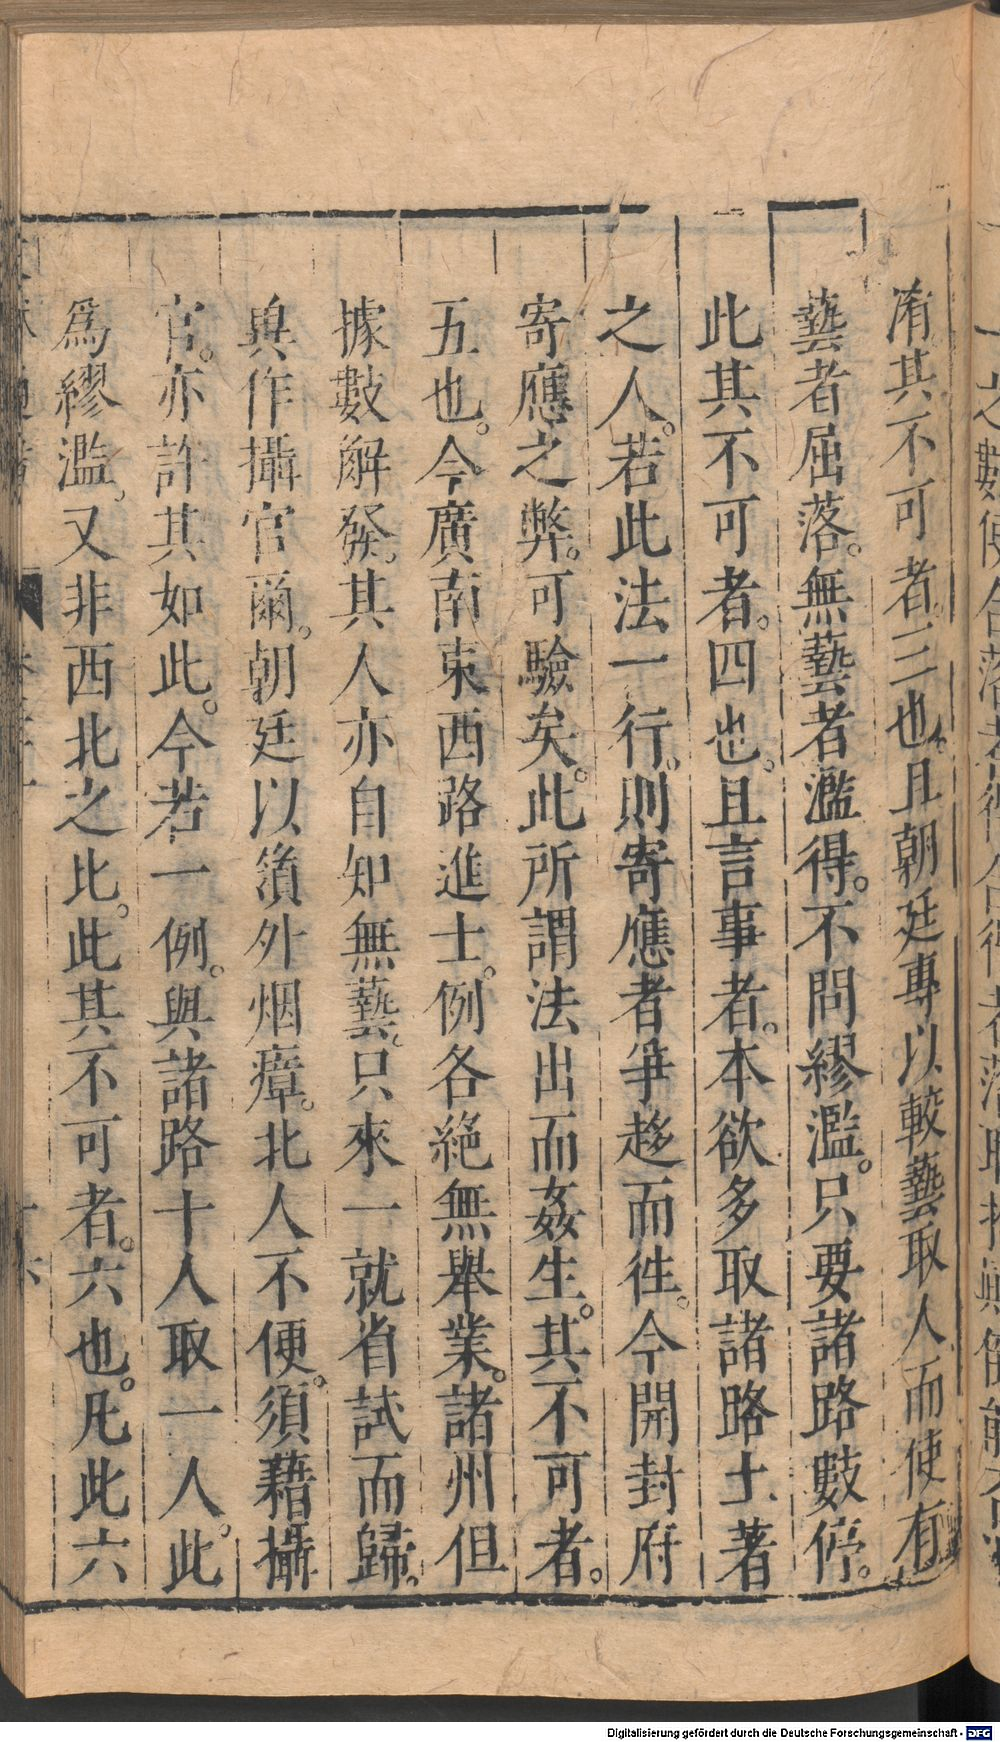 淆其不可者三也且朝廷專以較藝取人而使有
藝者屈落。無藝者濫得。不問繆濫。只要諸路數停。
此其不可者。四也。且言事者。本欲多取諸路土著
之人。若此法一行。則寄應者爭趍而徃。今開封府
寄應之弊。可驗矣。此所謂法出而姦生。其不可者。
五也。今廣南東西路進士。例各絶無舉業。諸州但
據數解發。其人亦自知無藝。只來一就省試而歸。
兾作攝官爾。朝廷以嶺外烟瘴。北人不便。須藉攝
官。亦許其如此。今若一例。與諸路十人取一人。此
爲繆濫。又非西北之比。此其不可者。六也。凡此六
Digitalisierung gefördert durch die Deutsche Forschungsgemeinschaft - DFG